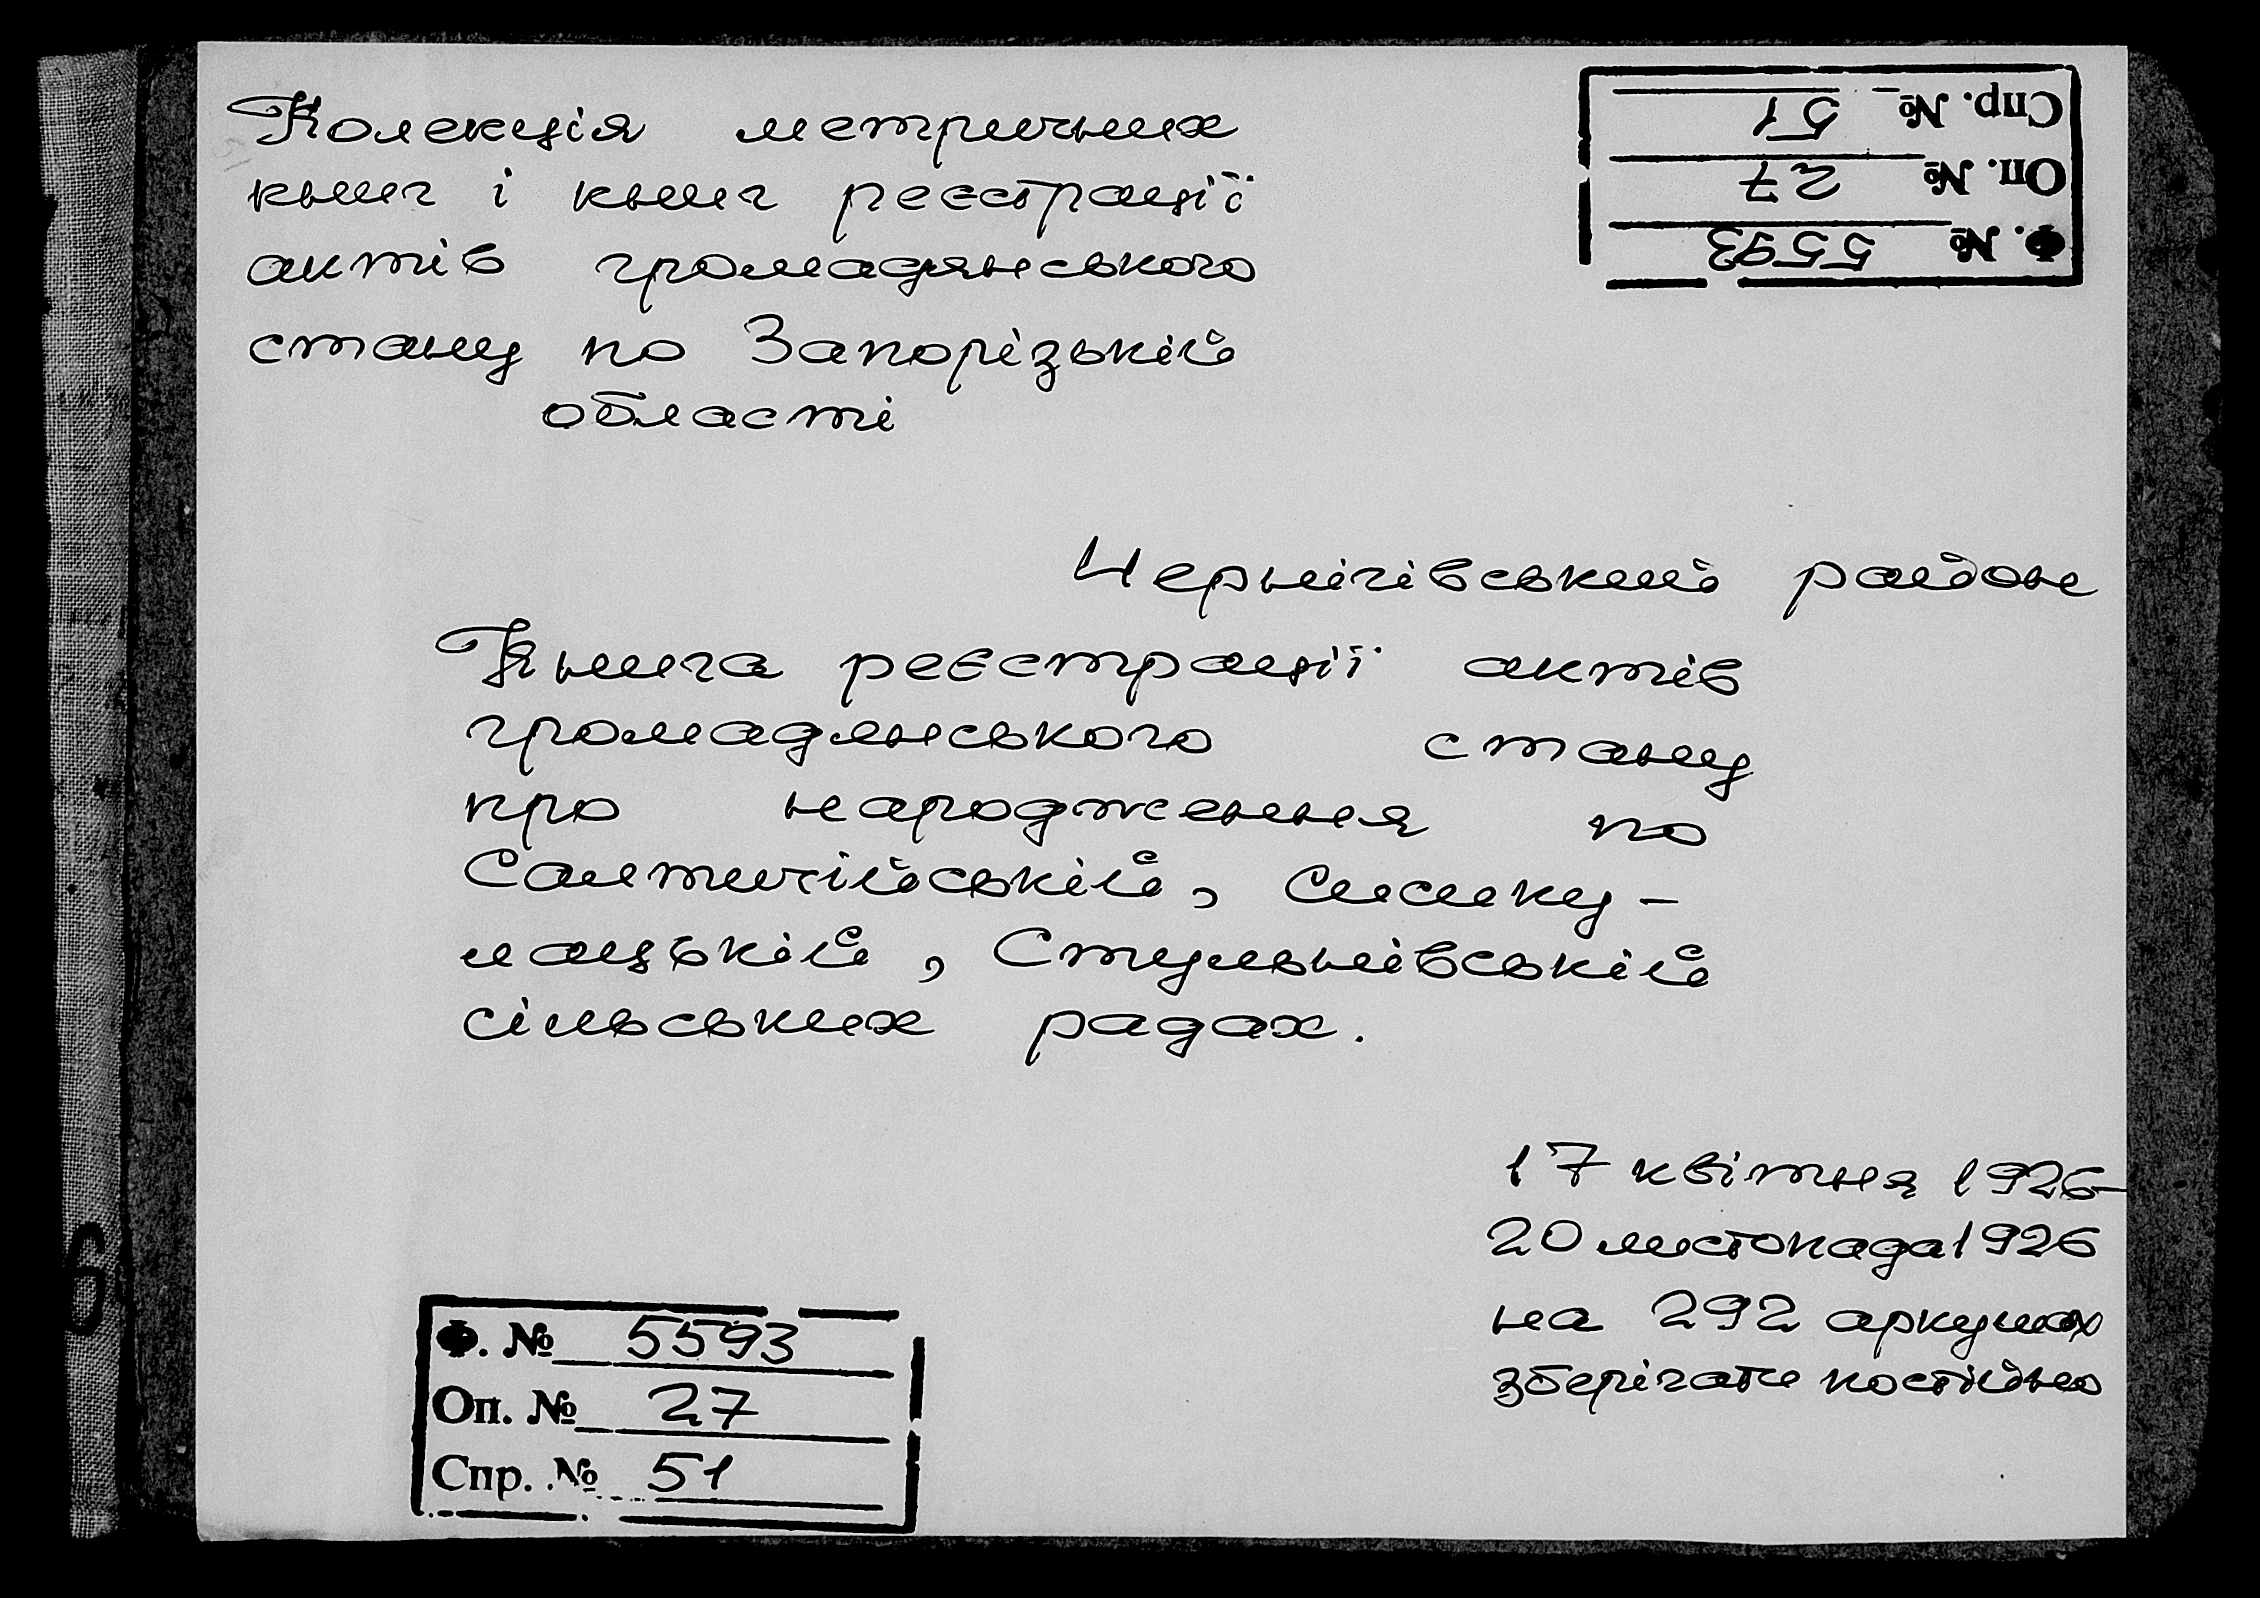 Колекція метричних
книг і книг реєстрації
актів громадянського
стану по Запорізькій
області
Спр. № 51
Оп. № 27
Ф. № 5593
Чернігівський район
Книга реєстрації актів
громадянського стану
про народження по
Салтичійській, Сисику-
лацькій, Стульнівській
сільських радах.
17 квітня 1926-
20 листопада 1926
на 292 аркушах
зберігати постійно
Ф. № 5593
Оп. № 27
Спр. № 51
6